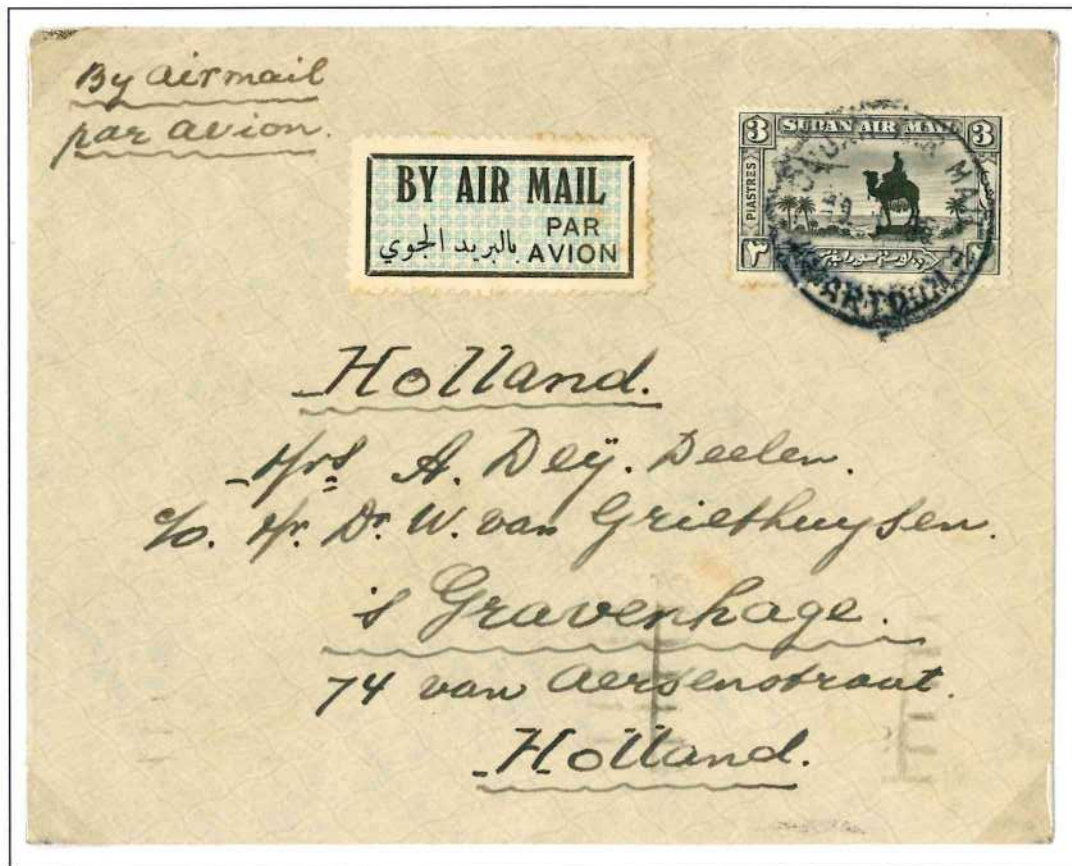 By airmail
par avion.
BY AIR MAIL
PAR
بالبريد الجوي AVION
3 SUDAN AIR MAIL 3
PIASTRES
٣
KHARTOUM
Holland.
Mrs A. Deÿ. Deelen.
c/o. Mr. Dr. W. van Griethuysen.
's Gravenhage.
74 van Aersenstraat.
Holland.